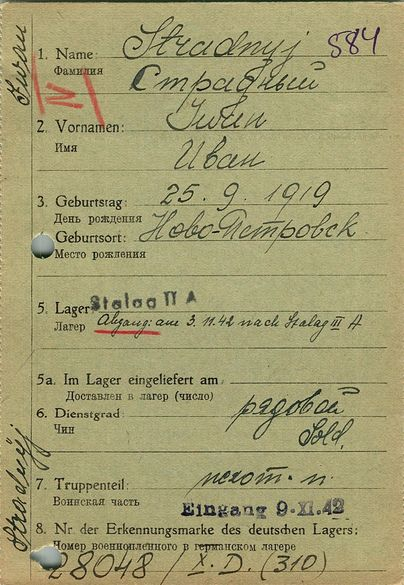 1. Name: Stradnyj 584
Фамилия Страдный
IV
2. Vornamen: Iwan
Имя Иван
3. Geburtstag: 25. 9. 1919
День рождения
Geburtsort: Ново-Петровск
Место рождения
5. Lager: Stalag II A
Лагерь Abgang: am 3. 11. 42 nach Stalag III A
5a. Im Lager eingeliefert am
Доставлен в лагерь (число)
6. Dienstgrad: рядовой
Чин Sold.
7. Truppenteil: пехот. п.
Воинская часть
Eingang 9. XI. 42
8. Nr. der Erkennungsmarke des deutschen Lagers:
Номер военнопленного в германском лагере
28048 / X. D. (310)
Stradnyj
Iwan